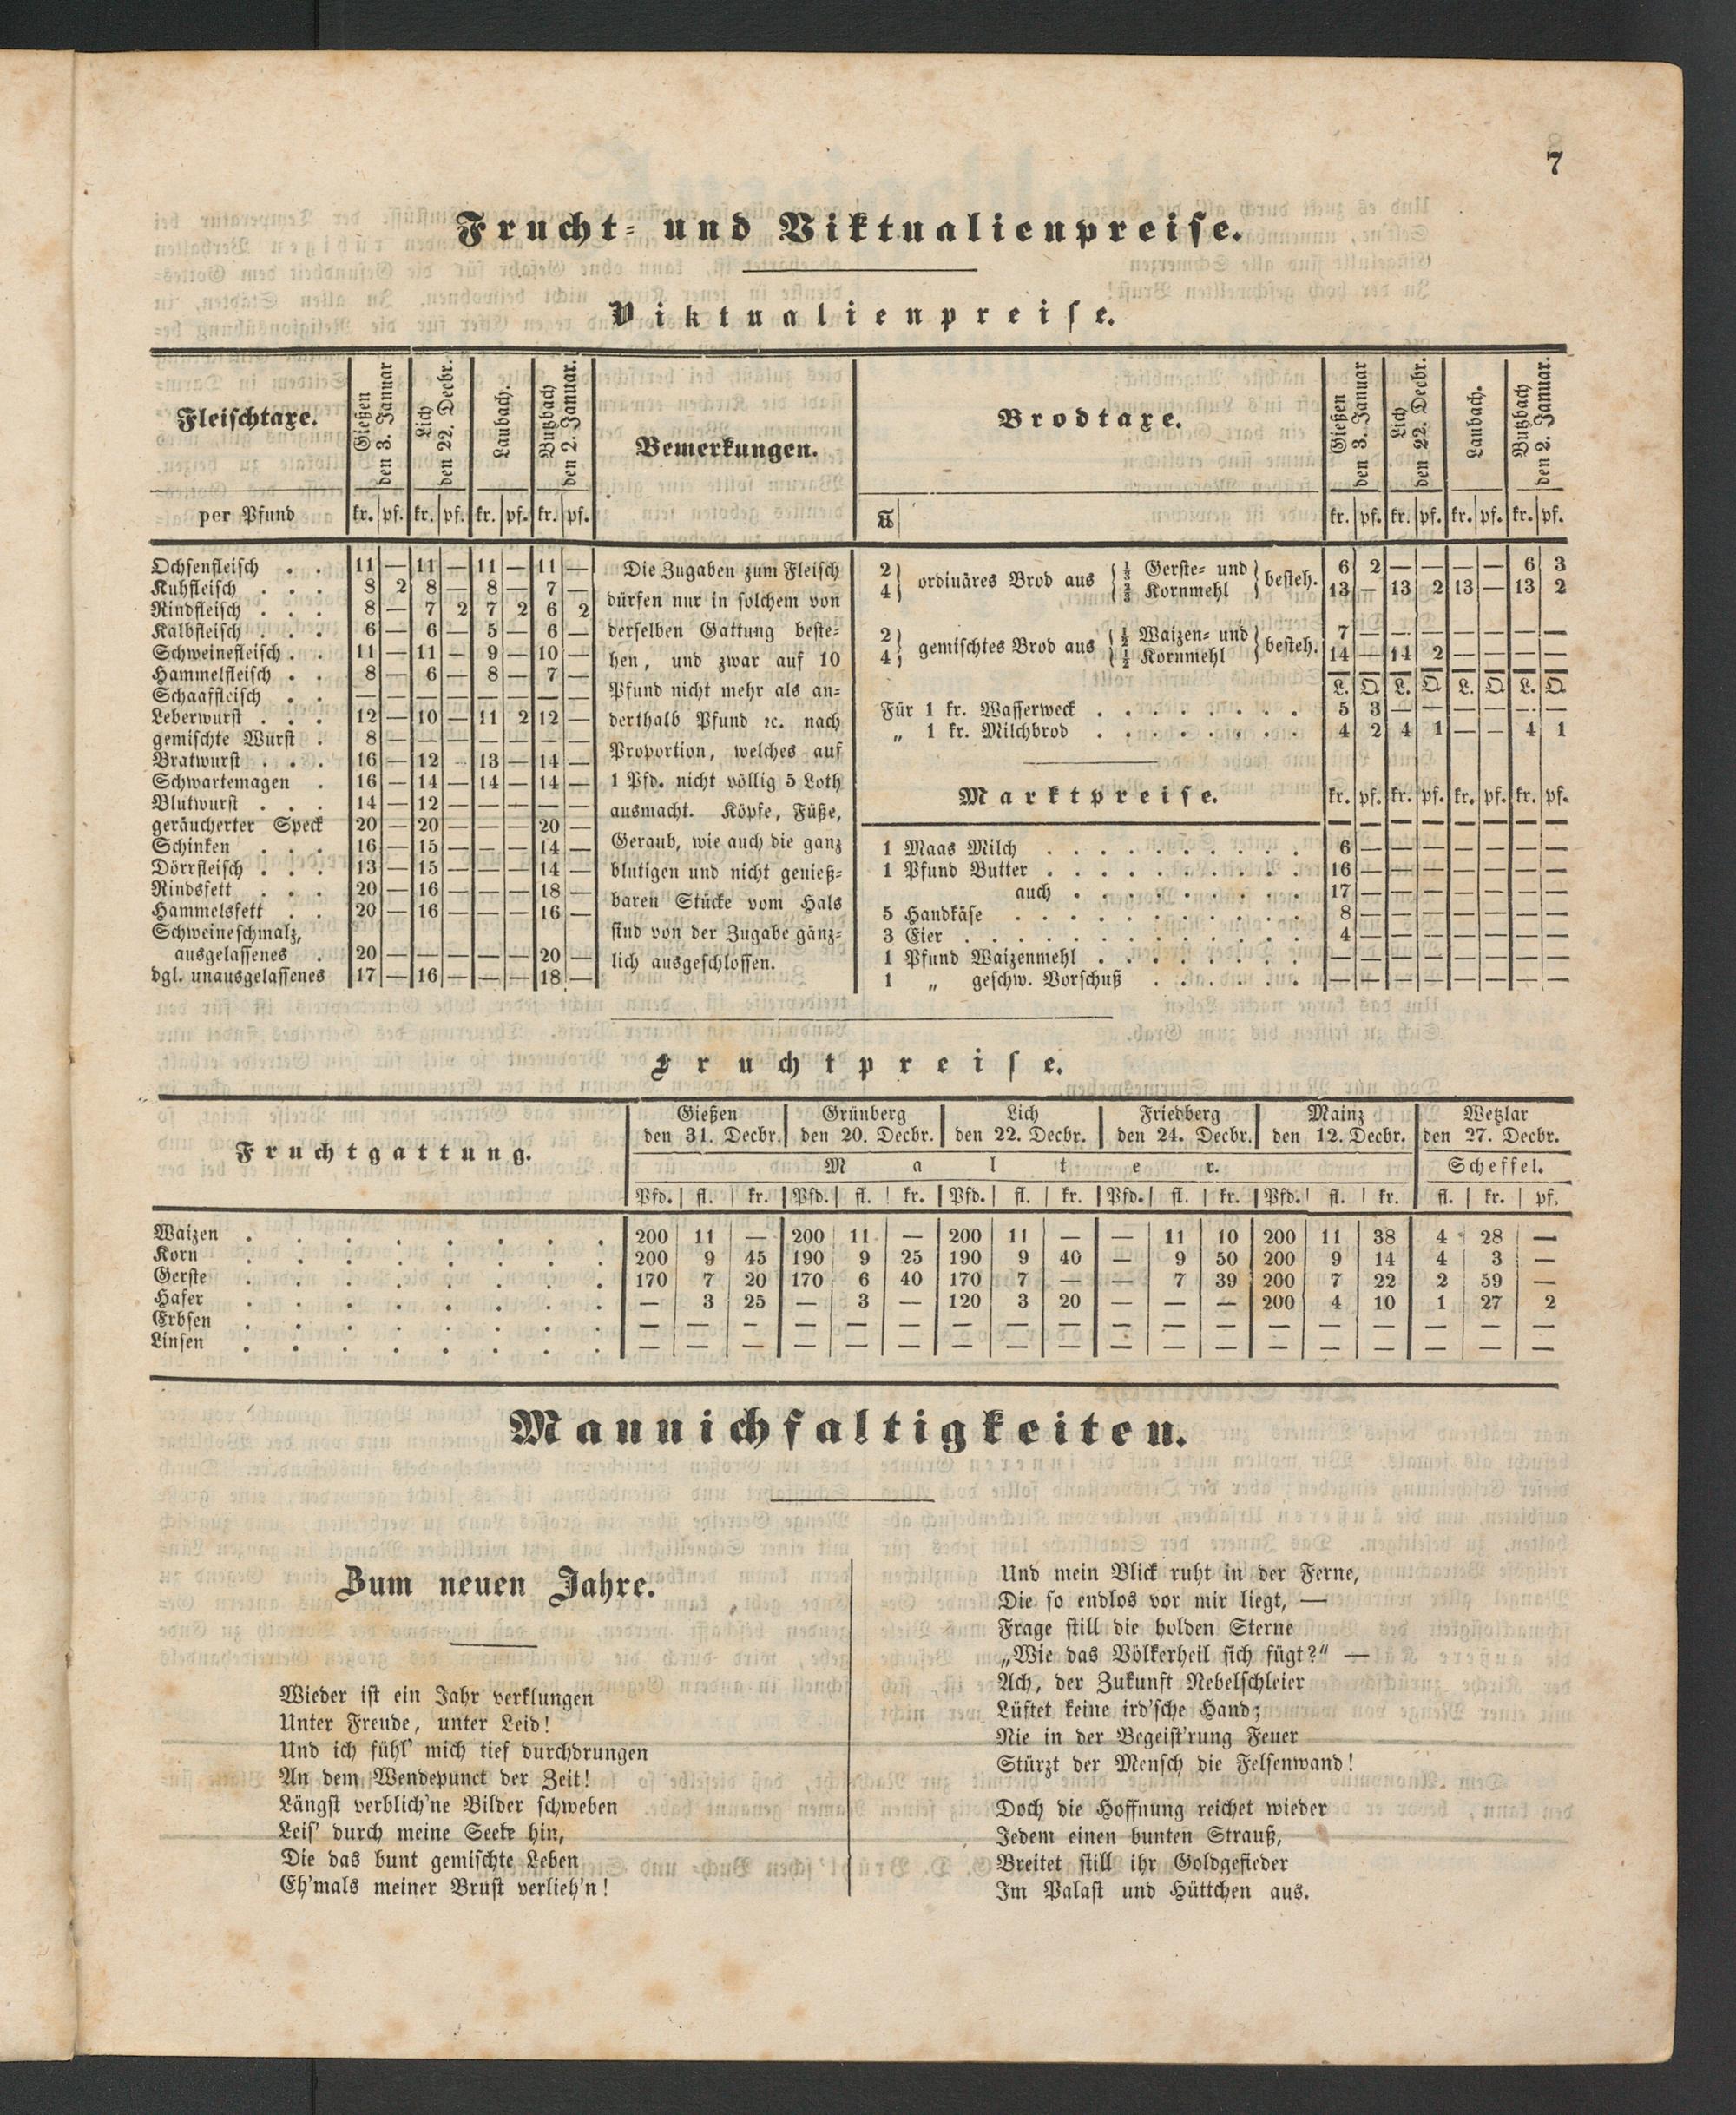 7
Frucht- und Viktualienpreise.
Viktualienpreise.
Fleischtaxe. | Gießen den 3. Januar | Lich den 22. Decbr. | Laubach. | Butzbach den 2. Januar.
per Pfund | kr. | pf. | kr. | pf. | kr. | pf. | kr. | pf.
Ochsenfleisch . . | 11 | — | 11 | — | 11 | — | 11 | —
Kuhfleisch . . . | 8 | 2 | 8 | — | 8 | — | 7 | —
Rindfleisch . . . | 8 | — | 7 | 2 | 7 | 2 | 6 | 2
Kalbfleisch . . . | 6 | — | 6 | — | 5 | — | 6 | —
Schweinefleisch . . | 11 | — | 11 | — | 9 | — | 10 | —
Hammelfleisch . . | 8 | — | 6 | — | 8 | — | 7 | —
Schaaffleisch . . | — | — | — | — | — | — | — | —
Leberwurst . . . | 12 | — | 10 | — | 11 | 2 | 12 | —
gemischte Wurst . | 8 | — | — | — | — | — | — | —
Bratwurst . . . | 16 | — | 12 | — | 13 | — | 14 | —
Schwartemagen . | 16 | — | 14 | — | 14 | — | 14 | —
Blutwurst . . . | 14 | — | 12 | — | — | — | — | —
geräucherter Speck | 20 | — | 20 | — | — | — | 20 | —
Schinken . . . | 16 | — | 15 | — | — | — | 14 | —
Dörrfleisch . . . | 13 | — | 15 | — | — | — | 14 | —
Rindsfett . . . | 20 | — | 16 | — | — | — | 18 | —
Hammelsfett . . | 20 | — | 16 | — | — | — | 16 | —
Schweineschmalz,
ausgelassenes . | 20 | — | — | — | — | — | 20 | —
dgl. unausgelassenes | 17 | — | 16 | — | — | — | 18 | —
Bemerkungen.
Die Zugaben zum Fleisch
dürfen nur in solchem von
derselben Gattung beste-
hen, und zwar auf 10
Pfund nicht mehr als an-
derthalb Pfund ꝛc. nach
Proportion, welches auf
1 Pfd. nicht völlig 5 Loth
ausmacht. Köpfe, Füße,
Geraub, wie auch die ganz
blutigen und nicht genieß-
baren Stücke vom Hals
sind von der Zugabe gänz-
lich ausgeschlossen.
Brodtaxe. | Gießen den 3. Januar | Lich den 22. Decbr. | Laubach. | Butzbach den 2. Januar.
℔ | kr. | pf. | kr. | pf. | kr. | pf. | kr. | pf.
2 } ordinäres Brod aus { ⅓ Gerste- und } besteh. | 6 | 2 | — | — | — | — | 6 | 3
4 } { ⅔ Kornmehl } | 13 | — | 13 | 2 | 13 | — | 13 | 2
2 } gemischtes Brod aus { ½ Waizen- und } besteh. | 7 | — | — | — | — | — | — | —
4 } { ½ Kornmehl } | 14 | — | 14 | 2 | — | — | — | —
L. | Q. | L. | Q. | L. | Q. | L. | Q.
Für 1 kr. Wasserweck . . . . . . . . | 5 | 3 | — | — | — | — | — | —
„ 1 kr. Milchbrod . . . . . . . . | 4 | 2 | 4 | 1 | — | — | 4 | 1
Marktpreise. | kr. | pf. | kr. | pf. | kr. | pf. | kr. | pf.
1 Maas Milch . . . . . . . . . . | 6 | — | — | — | — | — | — | —
1 Pfund Butter . . . . . . . . . . | 16 | — | — | — | — | — | — | —
auch . . . . . . . . . | 17 | — | — | — | — | — | — | —
5 Handkäse . . . . . . . . . . . | 8 | — | — | — | — | — | — | —
3 Eier . . . . . . . . . . . . . | 4 | — | — | — | — | — | — | —
1 Pfund Waizenmehl . . . . . . . . | — | — | — | — | — | — | — | —
1 „ geschw. Vorschuß . . . . . . | — | — | — | — | — | — | — | —
Fruchtpreise.
Fruchtgattung. | Gießen den 31. Decbr. | Grünberg den 20. Decbr. | Lich den 22. Decbr. | Friedberg den 24. Decbr. | Mainz den 12. Decbr. | Wetzlar den 27. Decbr.
Malter. | Scheffel.
Pfd. | fl. | kr. | Pfd. | fl. | kr. | Pfd. | fl. | kr. | Pfd. | fl. | kr. | Pfd. | fl. | kr. | fl. | kr. | pf.
Waizen . . . . . . . . | 200 | 11 | — | 200 | 11 | — | 200 | 11 | — | — | 11 | 10 | 200 | 11 | 38 | 4 | 28 | —
Korn . . . . . . . . | 200 | 9 | 45 | 190 | 9 | 25 | 190 | 9 | 40 | — | 9 | 50 | 200 | 9 | 14 | 4 | 3 | —
Gerste . . . . . . . . | 170 | 7 | 20 | 170 | 6 | 40 | 170 | 7 | — | — | 7 | 39 | 200 | 7 | 22 | 2 | 59 | —
Hafer . . . . . . . . | — | 3 | 25 | — | 3 | — | 120 | 3 | 20 | — | — | — | 200 | 4 | 10 | 1 | 27 | 2
Erbsen . . . . . . . . | — | — | — | — | — | — | — | — | — | — | — | — | — | — | — | — | — | —
Linsen . . . . . . . . | — | — | — | — | — | — | — | — | — | — | — | — | — | — | — | — | — | —
Mannichfaltigkeiten.
Zum neuen Jahre.
Wieder ist ein Jahr verklungen
Unter Freude, unter Leid!
Und ich fühl' mich tief durchdrungen
An dem Wendepunct der Zeit!
Längst verblich'ne Bilder schweben
Leis' durch meine Seele hin,
Die das bunt gemischte Leben
Eh'mals meiner Brust verlieh'n!
Und mein Blick ruht in der Ferne,
Die so endlos vor mir liegt, —
Frage still die holden Sterne
„Wie das Völkerheil sich fügt?“ —
Ach, der Zukunft Nebelschleier
Lüftet keine ird'sche Hand;
Nie in der Begeist'rung Feuer
Stürzt der Mensch die Felsenwand!
Doch die Hoffnung reichet wieder
Jedem einen bunten Strauß,
Breitet still ihr Goldgefieder
Im Palast und Hüttchen aus.